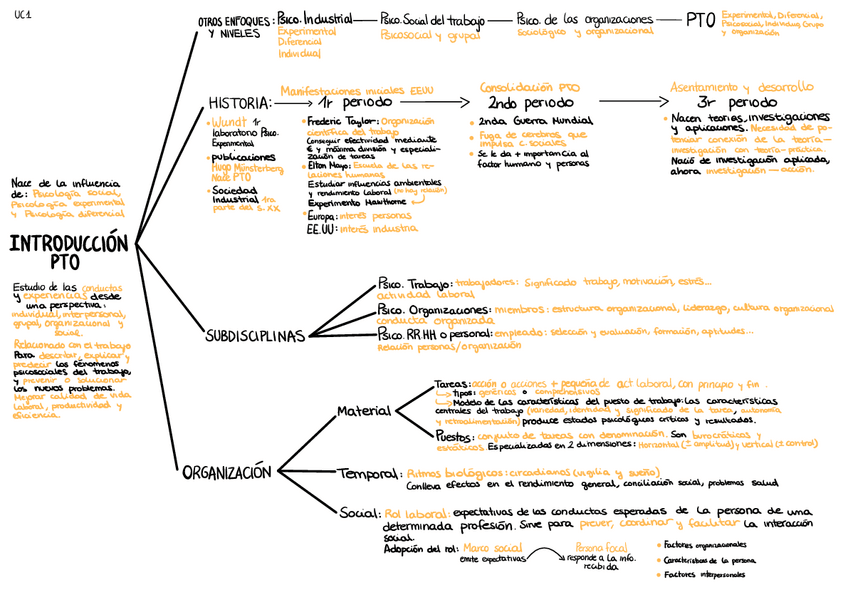 UC1
OTROS ENFOQUES Y NIVELES:
Psico. Industrial
Experimental
Diferencial
Individual
Psico. Social del trabajo
Psicosocial y grupal
Psico. de las organizaciones
Sociológico y organizacional
PTO
Experimental, Diferencial,
Psicosocial, Individuo, Grupo
y organización
HISTORIA:
• Wundt 1r
laboratorio Psico.
Experimental
• publicaciones
Hugo Münsterberg
Nace PTO
• Sociedad
Industrial 1ra
parte del s. XX
Manifestaciones iniciales EEUU
1r periodo
• Frederic Taylor: Organización
científica del trabajo
Conseguir efectividad mediante
y máxima división y especiali-
zación de tareas
• Elton Mayo: Escuela de las re-
laciones humanas
Estudiar influencias ambientales
y rendimiento laboral (no hay relación)
Experimento Hawthorne
• Europa: interés personas
EE.UU: interés industria
Consolidación PTO
2ndo periodo
• 2nda Guerra Mundial
• Fuga de cerebros que
impulsa c. sociales
• Se le da + importancia al
factor humano y personas
Asentamiento y desarrollo
3r periodo
• Nacen teorías, investigaciones
y aplicaciones. Necesidad de po-
tenciar conexión de la teoría-
investigación con teoría-práctica.
Nació de investigación aplicada,
ahora investigación — acción.
Nace de la influencia
de: Psicología social,
Psicología experimental
y Psicología diferencial
INTRODUCCIÓN
PTO
Estudio de las conductas
y experiencias desde
una perspectiva:
individual, interpersonal,
grupal, organizacional y
social.
Relacionado con el trabajo
Para describir, explicar y
predecir los fenómenos
psicosociales del trabajo,
y prevenir o solucionar
los nuevos problemas.
Mejorar calidad de vida
laboral, productividad y
eficiencia.
SUBDISCIPLINAS
Psico. Trabajo: trabajadores: Significado trabajo, motivación, estrés...
actividad laboral
Psico. Organizaciones: miembros: estructura organizacional, liderazgo, cultura organizacional
conducta organizada
Psico. RRHH o personal: empleado: selección y evaluación, formación, aptitudes...
Relación personas/organización
ORGANIZACIÓN
Material
Tareas: acción o acciones + pequeña de act laboral, con principio y fin.
Tipos: genéricas o comprehensivas
Modelo de las características del puesto de trabajo: las características
centrales del trabajo (variedad, identidad y significado de la tarea, autonomía
y retroalimentación) produce estados psicológicos críticos y resultados.
Puestos: conjunto de tareas con denominación. Son burocráticos y
estáticos. Especializados en 2 dimensiones: Horizontal (± amplitud) y vertical (± control)
Temporal: Ritmos biológicos: circadianos (vigilia y sueño)
Conlleva efectos en el rendimiento general, conciliación social, problemas salud
Social: Rol laboral: expectativas de las conductas esperadas de la persona de una
determinada profesión. Sirve para prever, coordinar y facilitar la interacción
social.
Adopción del rol: Marco social
emite expectativas
Persona focal
responde a la info.
recibida
• Factores organizacionales
• Características de la persona
• Factores interpersonales